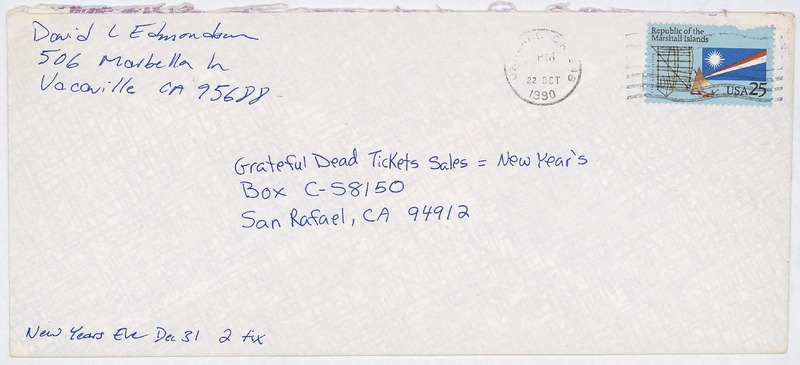 David L Edmondson
506 Marbella Ln
Vacaville CA 95688
PM
22 OCT
1990
Republic of the
Marshall Islands
USA 25
Grateful Dead Tickets Sales = New Year's
Box C-S8150
San Rafael, CA 94912
New Years Eve Dec 31 2 tix